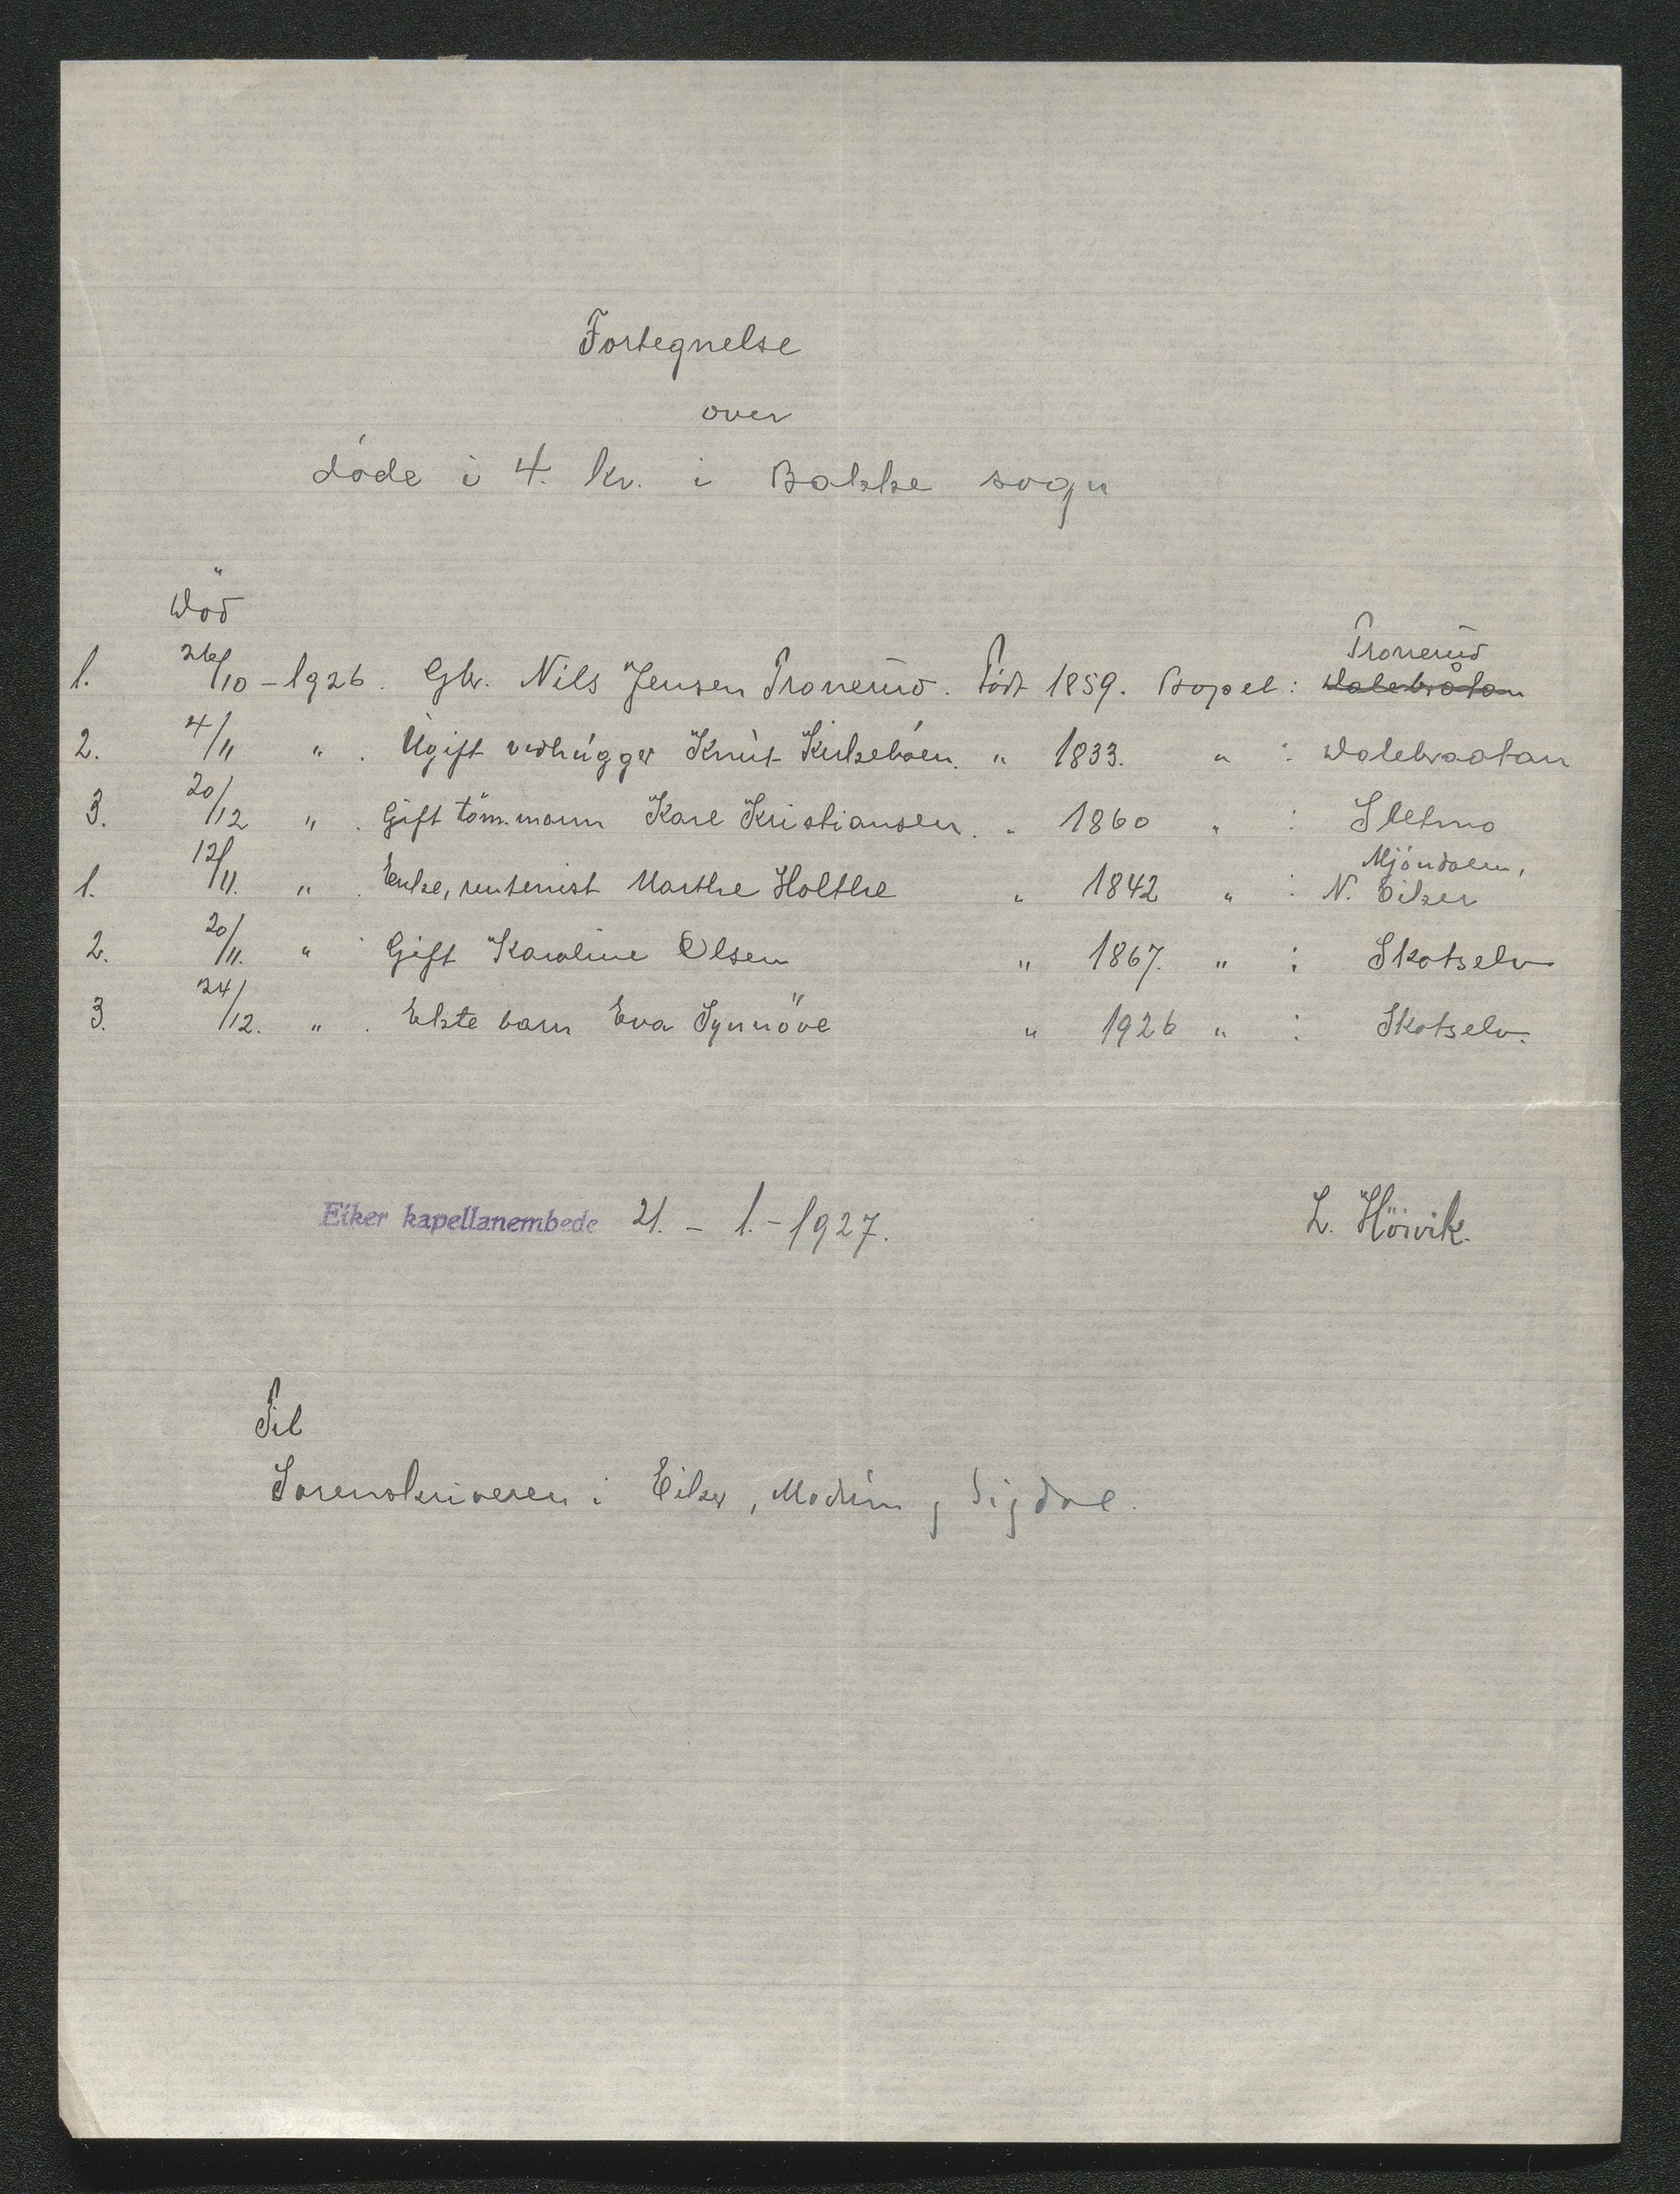 Fortegnelse
over
døde i 4. kv. i Bakke sogn
Död
1. 26/10 - 1926. Gbr. Nils Jensen Tronerud. Født 1859. Bopel: Tronerud
2. 4/11 " . Ugift vedhugger Knut Kirkebøen. " 1833. " : Dalebraatan
3. 20/12 " . Gift töm.mann Karl Kristiansen. " 1860 " : Sletmo
1. 12/11. " . Enke, rentenist Marthe Holthe " 1842 " : Mjøndalen, N. Eiker
2. 20/11. " . Gift Karoline Olsen " 1867. " : Skotselv
3. 24/12. " . Ekte barn Eva Synnöve " 1926 " : Skotselv.
Eiker kapellanembede 21. - 1. - 1927. L. Höivik.
Til
Sorenskriveren i Eiker, Modum, Sigdal.